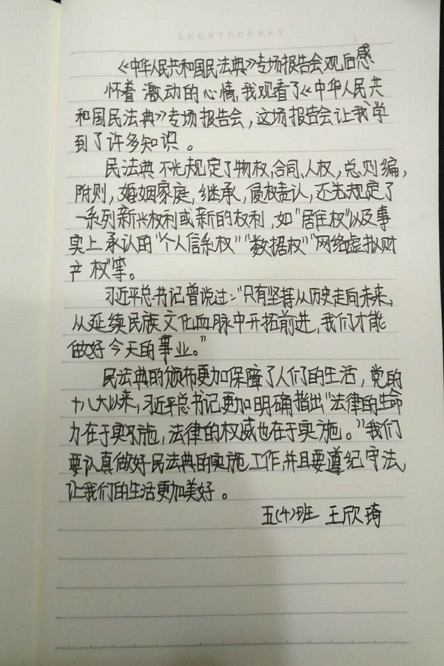 SHONYOURWAY
《中华人民共和国民法典》专场报告会观后感
怀着激动的心情,我观看了《中华人民共
和国民法典》专场报告会,这场报告会让我学
到了许多知识。
民法典不光规定了物权,合同,人权,总则编,
附则,婚姻家庭,继承,侵权责认,还先规定了
一系列新兴权利或新的权利,如“居住权”以及事
实上承认的“个人信系权”“数据权”“网络虚拟财
产权”等。
习近平总书记曾说过:“只有坚持从历史走向未来,
从延续民族文化血脉中开拓前进,我们才能
做好今天的事业。”
民法典的颁布更加保障了人们的生活,党的
十八大以来,习近平总书记更加明确指出“法律的生命
力在于实施,法律的权威也在于实施。”我们
要认真做好民法典的实施工作,并且要遵纪守法,
让我们的生活更加美好。
五(4)班 王欣琦